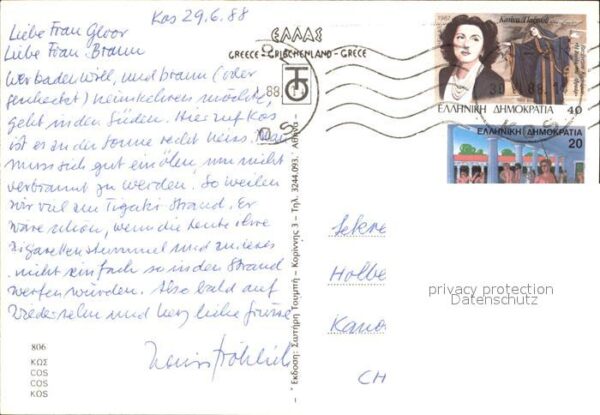 Kos 29.6.88
Liebe Frau Gloor
Liebe Frau Braun
Wer baden will, und braun (oder
heimkehren möchte,
geht in den Süden. Hier auf Kos
ist es an der Sonne recht heiss. Man
muss sich gut einölen, um nicht
verbrannt zu werden. So weilen
wir viel am Tigaki Strand. Er
wäre schön, wenn die Leute ihre
Zigarettenstummel und anderes
nicht einfach so in den Strand
werfen würden. Also bald auf
Wiedersehen und herz liche Grüsse
Fröhlich
806
ΚΩΣ
COS
COS
KOS
ΕΛΛΑΣ
GREECE - GRISCHENLAND - GRECE
Έκδοση: Σωτήρη Τουμπή - Κορίννης 3 - Τηλ. 3244.093. Αθήνα
88
30
88
1987
Κατίνα Παξινού
ΕΛΛΗΝΙΚΗ ΔΗΜΟΚΡΑΤΙΑ 40
ΕΛΛΗΝΙΚΗ ΔΗΜΟΚΡΑΤΙΑ
20
Sekre
Holbe
Kano
CH
privacy protection
Datenschutz